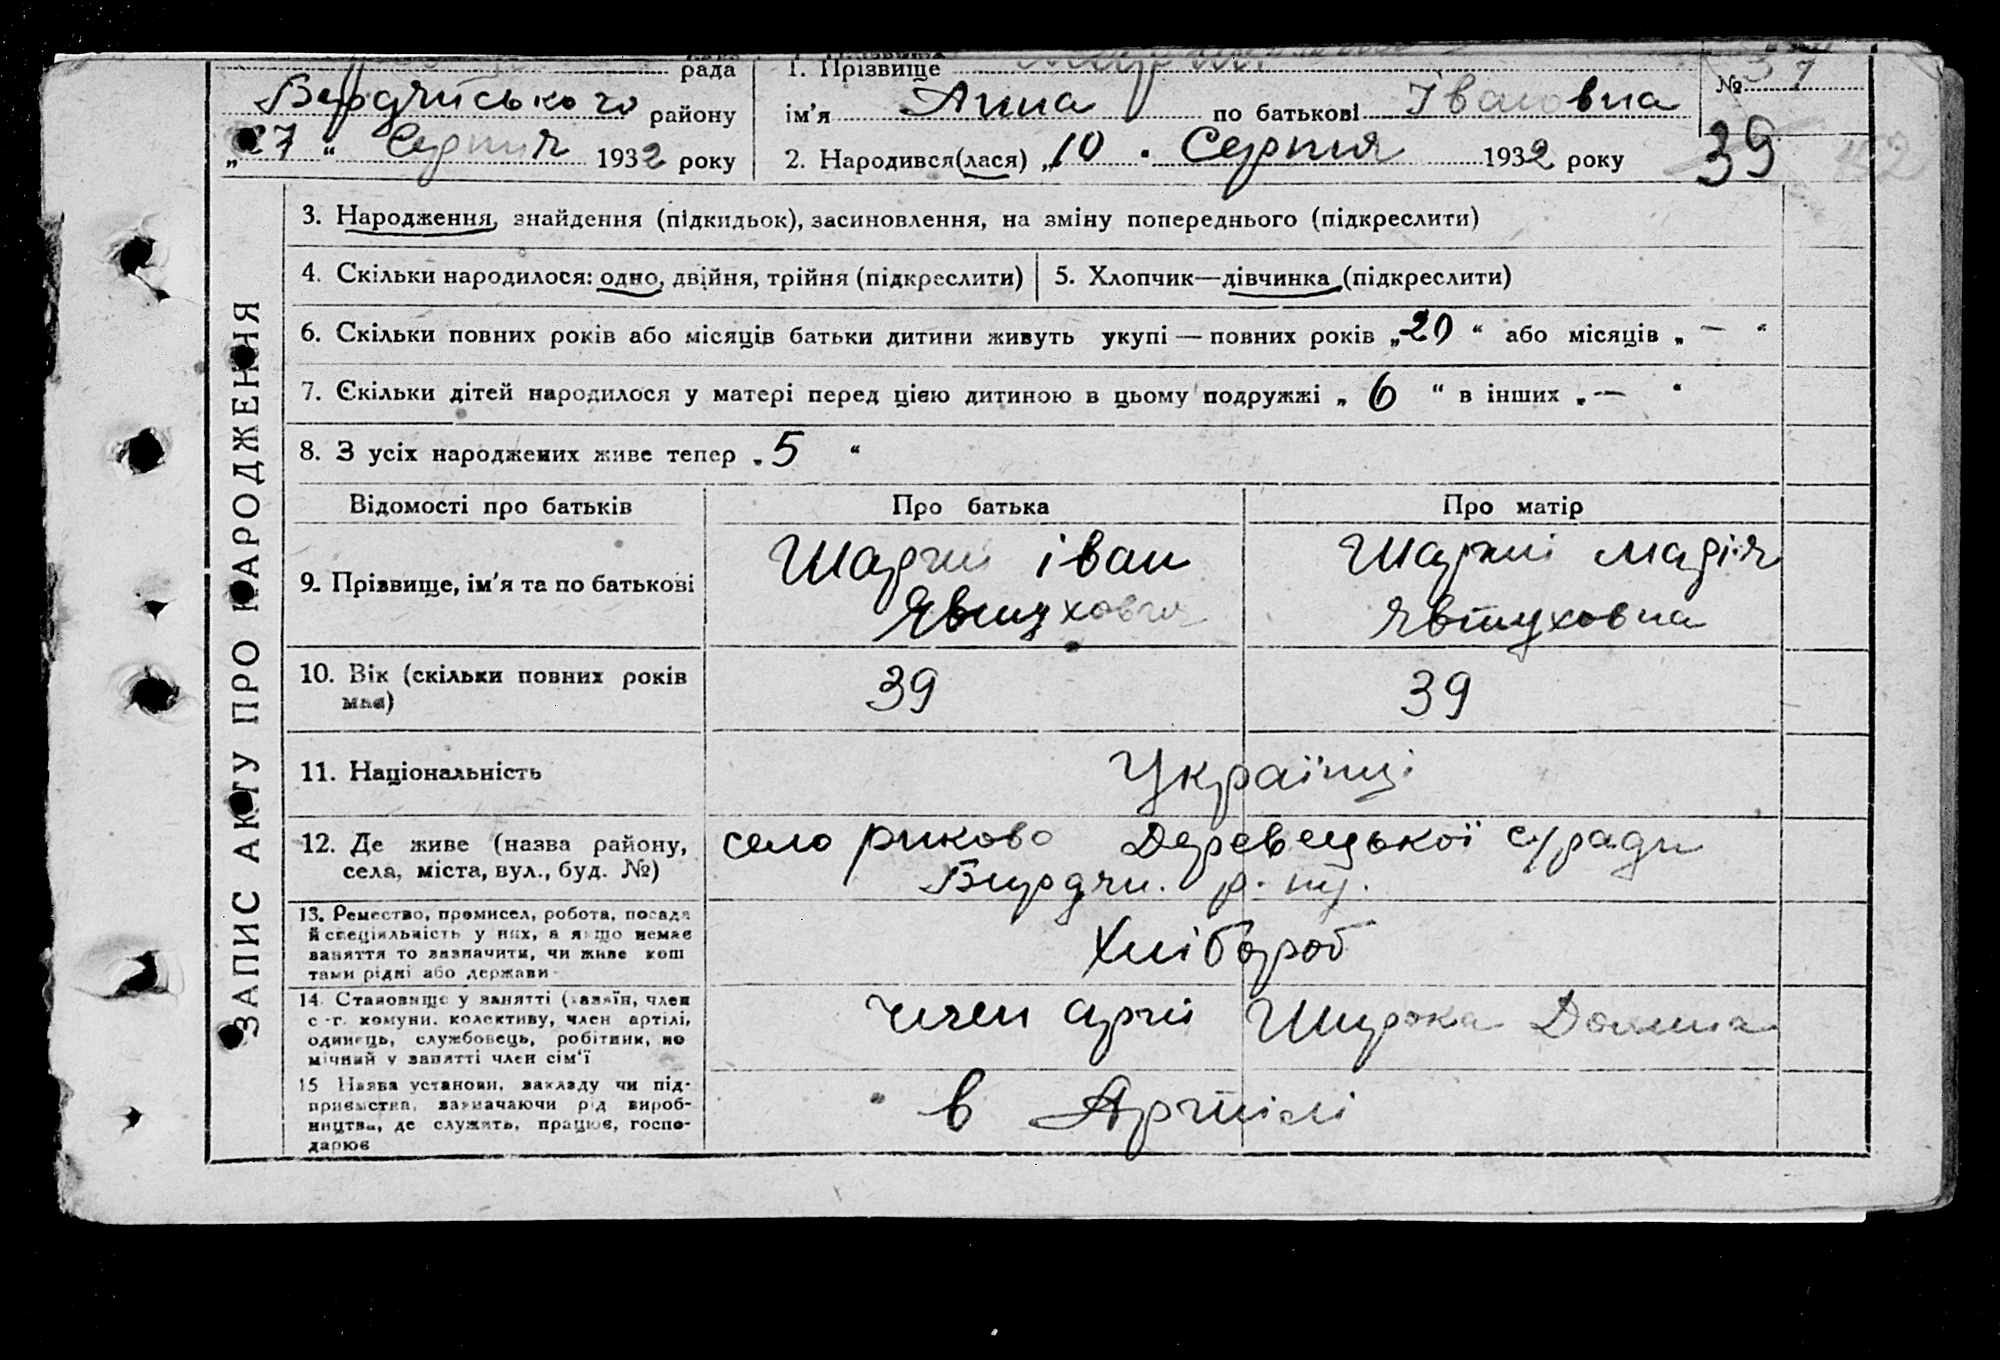 рада
1. Прізвище
№ 37
Бердичівського району
ім'я Анна по батькові Івановна
39
„27“ Серпня 1932 року
2. Народився(лася) „10 . Серпня 1932 року
ЗАПИС АКТУ ПРО НАРОДЖЕННЯ
3. Народження, знайдення (підкидьок), засиновлення, на зміну попереднього (підкреслити)
4. Скільки народилося: одно, двійня, трійня (підкреслити) 5. Хлопчик—дівчинка (підкреслити)
6. Скільки повних років або місяців батьки дитини живуть укупі — повних років „20“ або місяців „—“
7. Скільки дітей народилося у матері перед цією дитиною в цьому подружжі „6“ в інших „—“
8. З усіх народжених живе тепер „5“
Відомості про батьків Про батька Про матір
9. Прізвище, ім'я та по батькові
іван
Явтуховна
10. Вік (скільки повних років має) 39 39
11. Національність Українці
12. Де живе (назва району, села, міста, вул., буд. №)
село риково с/ради
13. Ремество, промисел, робота, посада
й спеціяльність у них, а якщо немає
заняття то зазначити, чи живе кош
тами рідні або держави
Хлібороб
14. Становище у занятті (хазяїн, член
с.-г. комуни, колективу, член артілі,
одинець, службовець, робітник, по
мічний у занятті член сім'ї
член арті Широка Долина
15 Назва установи, закладу чи під-
приємства, зазначаючи рід вироб-
ництва, де служить, працює, госпо-
дарює
в Артілі